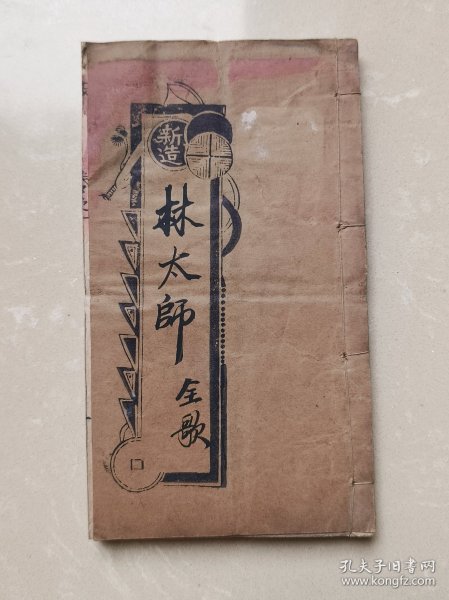 新造
林太師
全歌
孔夫子旧书网
www.kongfz.com